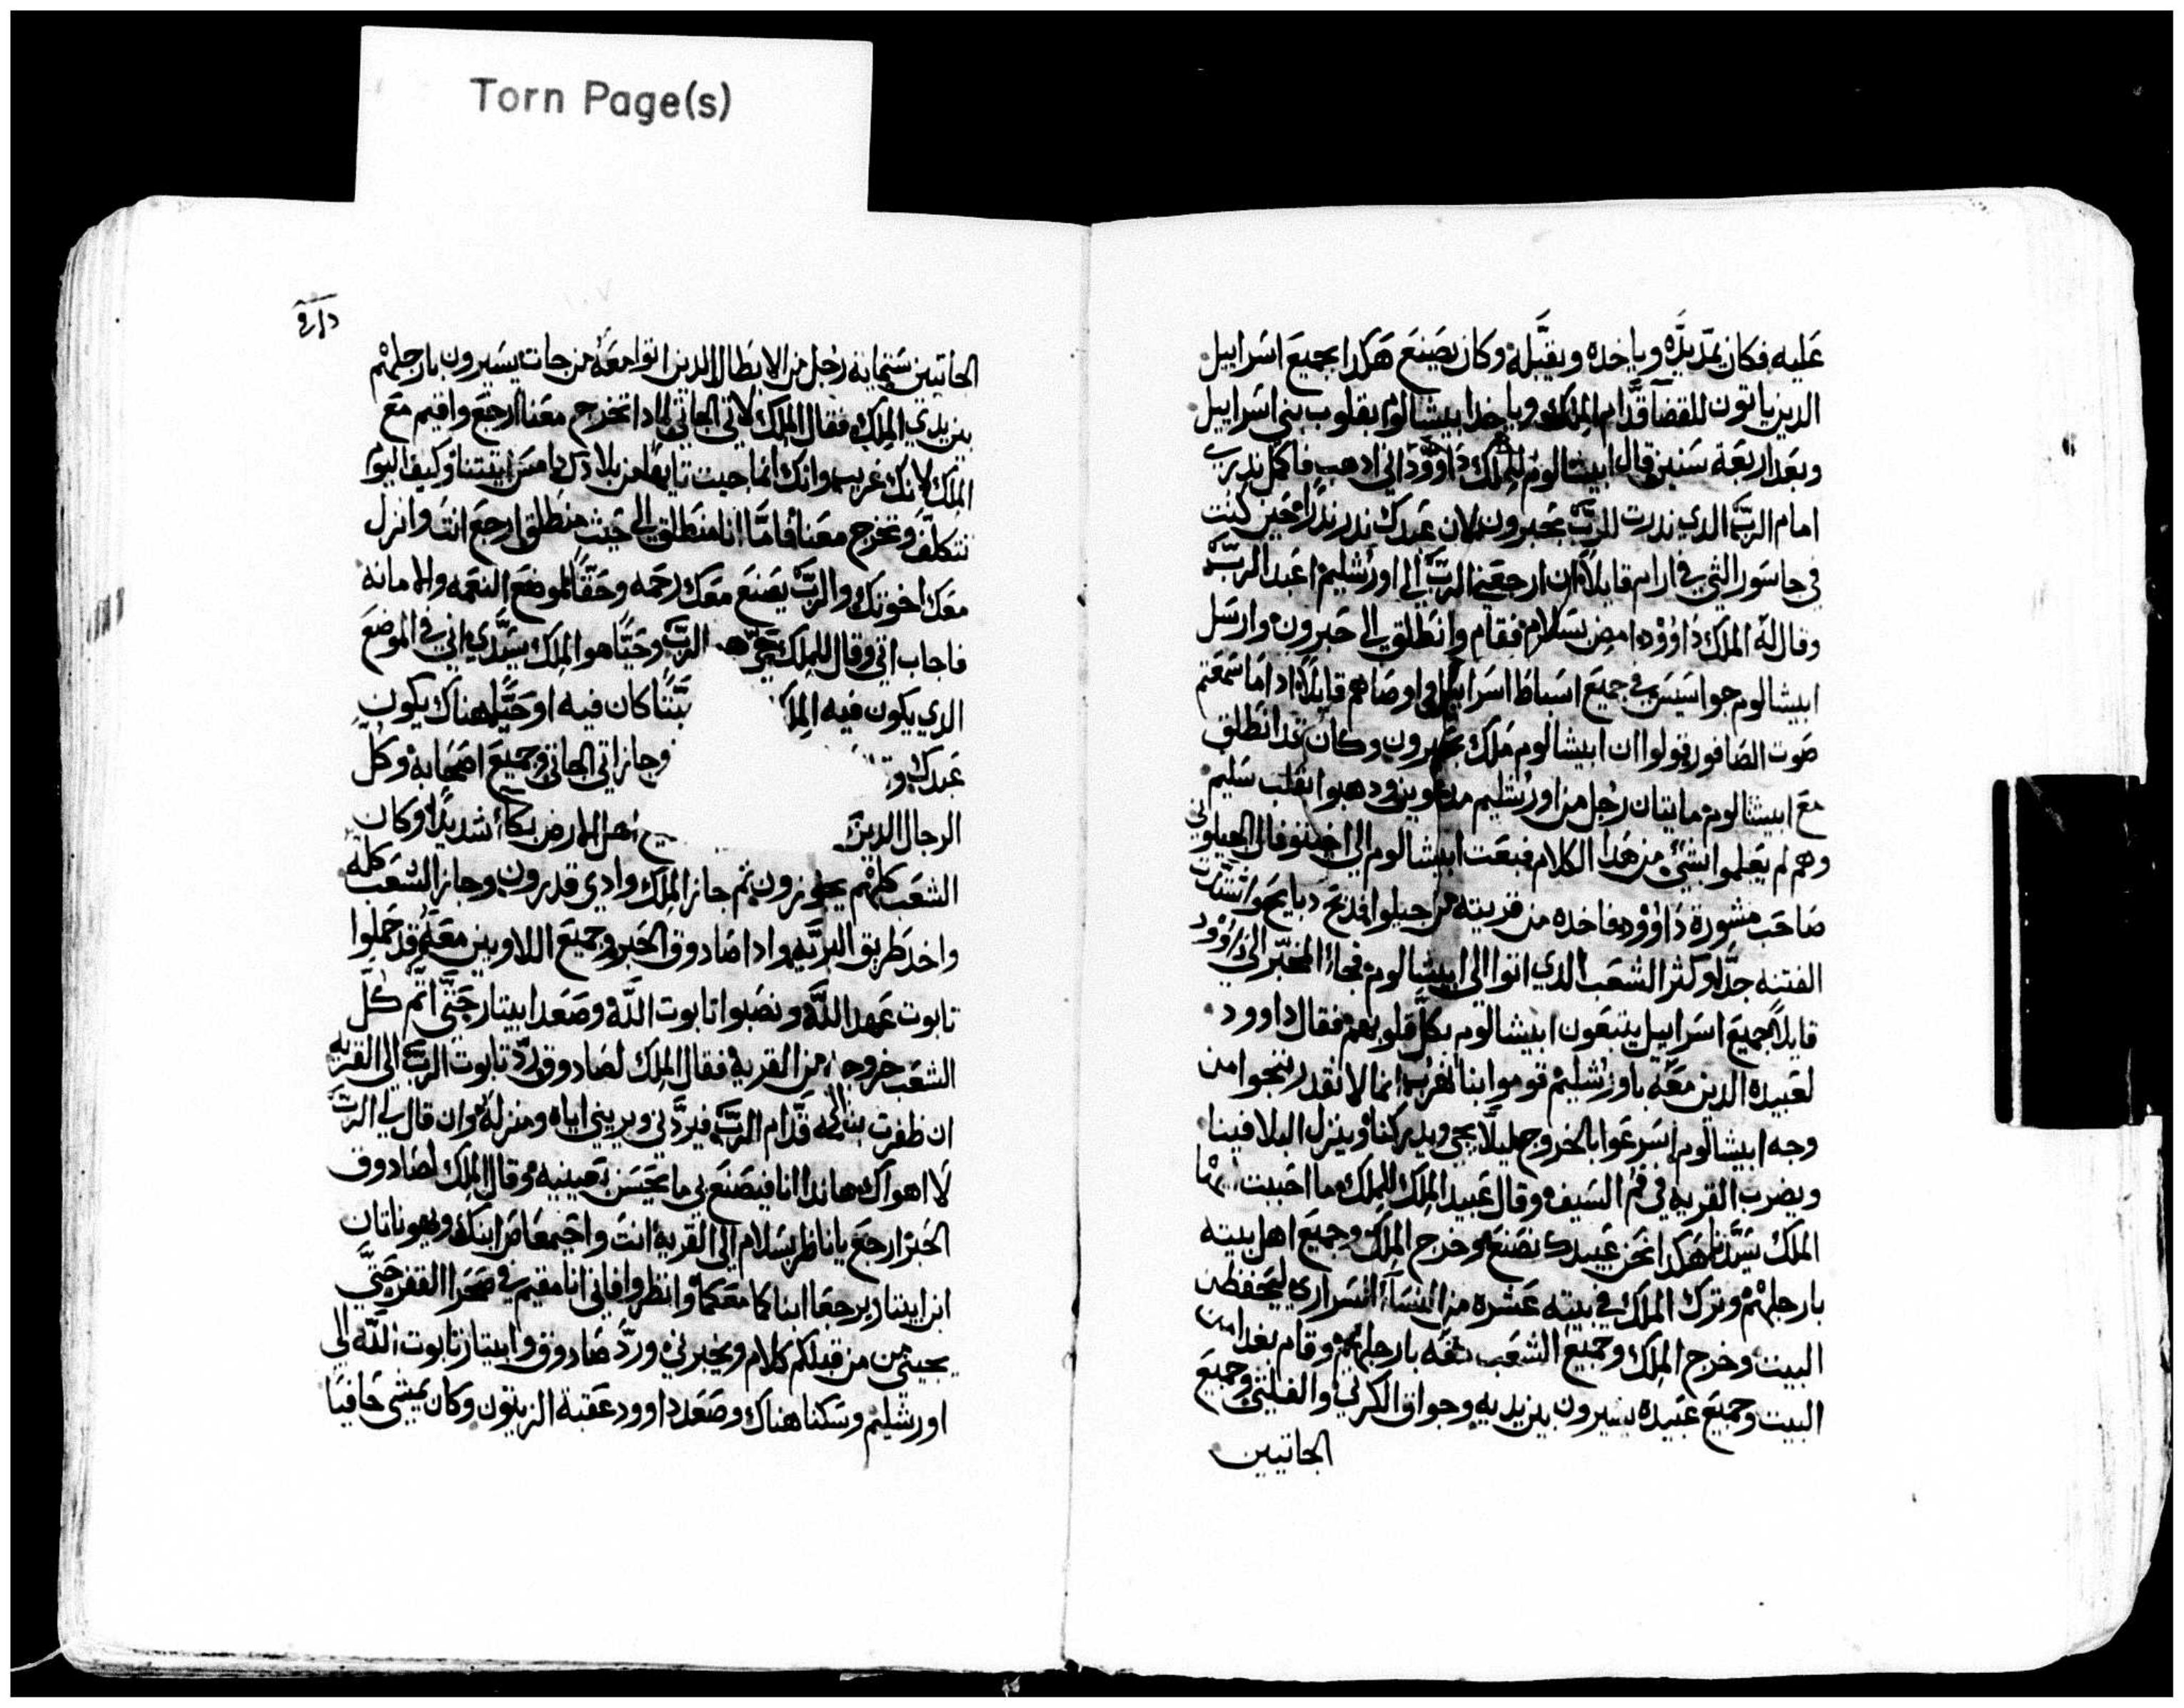 Torn Page(s)
عليه فكان يمد يده وياخده ويقبله وكان يصنع هكدا بجميع اسراييل
الدين ياتون للقضا قدام الملك وياخد ابيشالوم بقلوب بني اسراييل
وبعد اربعة سنين قال ابيشالوم للملك داوود ابي ادهب فاكمل ندري
امام الرب الدي ندرت للرب بحبرون لان عبدك ندر ندرا حين كنت
في جاسور التي في ارام قايلا ان ارجعني الرب الي اورشليم اعبد الرب
وقال له الملك داوود امض بسلام فقام وانطلق الي حبرون وارسل
ابيشالوم جواسيس في جميع اسباط اسراييل واوصاهم قايلا ادا ما سمعتم
صوت الصافور قولوا ان ابيشالوم ملك بحبرون وكان قد انطلق
مع ابيشالوم مايتان رجل من اورشليم مدعوين ودهبوا بقلب سليم
وهم لم يعلموا بشي من هدا الكلام فبعت ابيشالوم الي اخيتوفال الجيلوني
صاحب مشورة داوود فاخده من قريته من جيلوا ادبح دبايح واشتدت
الفتنه جدا وكثر الشعب الدي اتوا الي ابيشالوم فجا المخبر الي داوود
قايلا جميع اسراييل يتبعون ابيشالوم بكل قلوبهم فقال داوود
لعبيده الدين معه باورشليم قوموا بنا نهرب انما لا نقدر ننجوا من
وجه ابيشالوم اسرعوا بالخروج ليلا يجي ويدركنا وينزل البلا فينا
ويضرب القريه في فم السيف وقال عبيد الملك للملك ما احببت
الملك سيدنا هكدا نحن عبيدك نصنع وخرج الملك وجميع اهل بيته
بارجلهم وترك الملك في بيته عشره من النسا السراري ليحفظن
البيت وخرج الملك وجميع الشعب معه بارجلهم وقام بعدا من
البيت وجميع عبيده يسيرون بين يديه وجواق الكرتي والفلتي وجميع
الجاتيين
الجاتيين ستمايه رجل من الابطال الدين اتوا معه من جات يسيرون بارجلهم
بين يدي الملك فقال الملك لاتي الجاتي لمادا تخرج معنا ارجع واقيم مع
الملك لانك غريب وانك انما جيت تايها من بلادك امس اتيتنا وكيف اليوم
نتكلف وتخرج معنا فاما انا منطلق الي حيث منطلق ارجع انت وانزل
معك اخوتك والرب يصنع معك رحمه وحقا لموضع النعمه والامانه
فاجاب اتي وقال للملك حي هو الرب وحيا هو الملك سيدي اني في الموضع
الدي يكون فيه الملك ميتا كان فيه او حيا هناك يكون
عبدك وجاز اتي الجاتي وجميع اصحابه وكل
الرجال الدين اهل الارض بكا شديدا وكان
الشعب كلهم يجوزون ثم جاز الملك وادي قدرون وجاز الشعب كله
واخد طريق البريه وادا صادوق الحبر وجميع اللاويين معه قد حملوا
تابوت عهد الله ونصبوا تابوت الله وصعد ابيتار حتي اتم كل
الشعب خروجه من القريه فقال الملك لصادوق رد تابوت الرب الي القريه
ان ظفرت بنعمه قدام الرب فيردني ويريني اياه ومنزله وان قال لي الرب
لا اهواك هاندا انا فيصنع بي ما يحسن بعينيه وقال الملك لصادوق
الحبر ارجع يا ناظر بسلام الي القريه انت واحيمعاص ابنك ويهوناتان
ابن ابيتار يرجعا ابناكما معكما وانظروا فاني انا مقيم في صحرا القفر حتي
يجيني من قبلكم كلام ويخبرني ورد صادوق وابيتار تابوت الله الي
اورشليم وسكنا هناك وصعد داوود عقبة الزيتون وكان يمشي حافيا